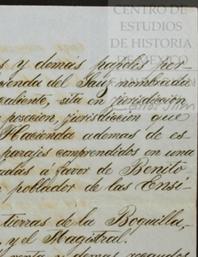 CENTRO DE
ESTUDIOS
DE HISTORIA
DE
s y demás papeles por
ienda del Jaral nombrada
ediente, sita en jurisdicción
posecion, jurisdiccion que
Hacienda ademas de es
parajes comprendidos en una
adas á favor de Benito
poblador de las Ensi-
tierras de la Boquilla,
y el Magistral.
venta y demas recaudos